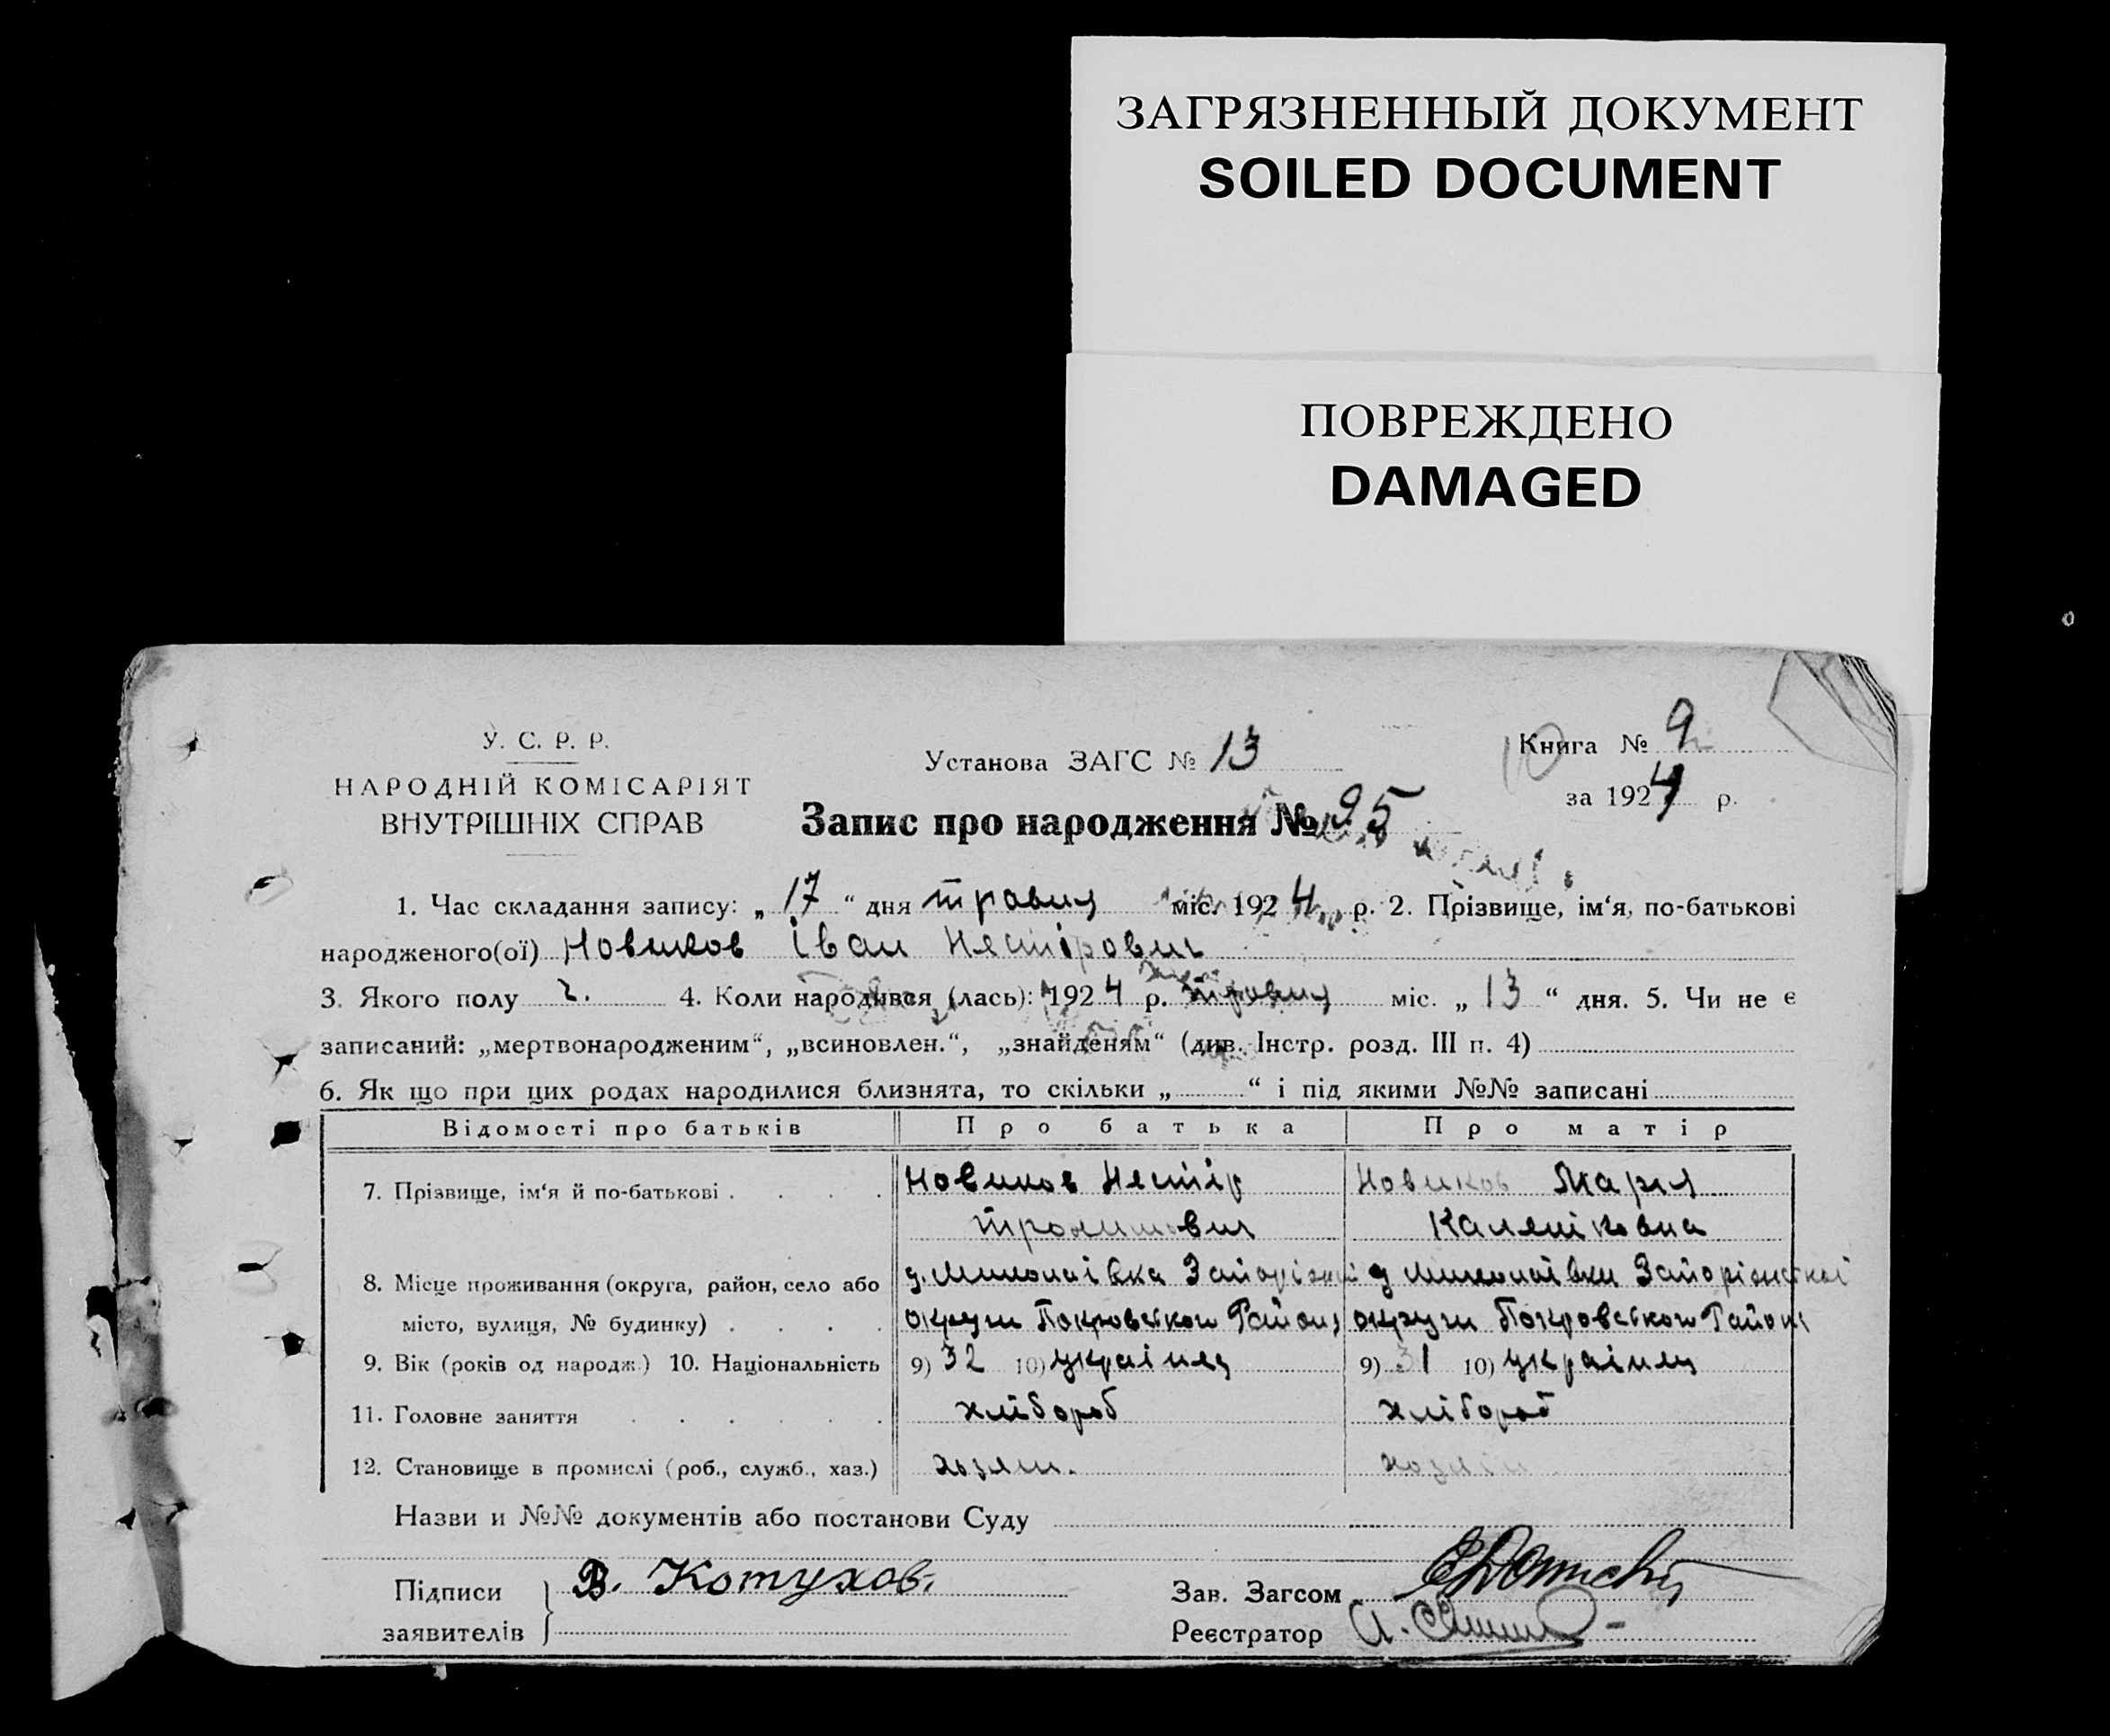 ЗАГРЯЗНЕННЫЙ ДОКУМЕНТ
SOILED DOCUMENT
ПОВРЕЖДЕНО
DAMAGED
У. С. Р. Р.
НАРОДНІЙ КОМІСАРІЯТ
ВНУТРІШНІХ СПРАВ
Установа ЗАГС № 13
Книга № 9
10
за 1924 р.
Запис про народження № 95
1. Час складання запису: „ 17 “ дня травня міс. 1924 р. 2. Прізвище, ім‘я, по-батькові
народженого(ої) Новиков Іван Нестірович
3. Якого полу ч. 4. Коли народився (лась): 1924 р. травня міс. „ 13 “ дня. 5. Чи не є
записаний: „мертвонародженим“, „всиновлен.“, „знайденям“ (див. Інстр. розд. III п. 4)
6. Як що при цих родах народилися близнята, то скільки „ “ і під якими №№ записані
Відомості про батьків Про батька Про матір
7. Прізвище, ім‘я й по-батькові . . . . Новиков Нестір Новиков Марія
8. Місце проживання (округа, район, село або д. Миколаівка Запорізкоі д Миколаівки
місто, вулиця, № будинку) . . . . округи Покровського Району округи Покровського Району
9. Вік (років од народж.) 10. Національність 9) 32 10) украінец 9) 31 10) украінец
11. Головне заняття . . . . . . хлібороб хлібороб
12. Становище в промислі (роб., служб., хаз.) хозяин. хозяін
Назви и №№ документів або постанови Суду
Підписи В. Котухов. Зав. Загсом
заявителів Реєстратор